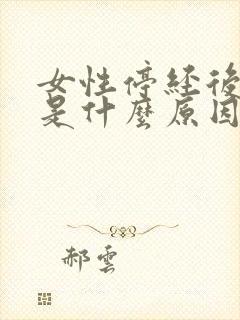 女性停経後
是什麼原因
郝雲